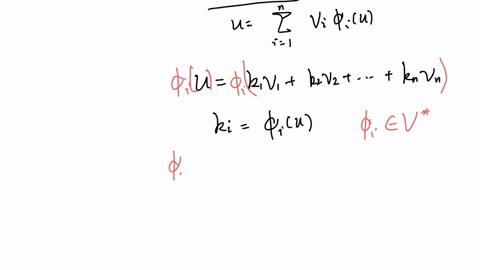 u = \sum_{i=1}^{n} v_i \phi_i(u)
\phi_i(u) = \phi_i(k_1 v_1 + k_2 v_2 + ... + k_n v_n)
k_i = \phi_i(u) \phi_i ∈ V^*
\phi.